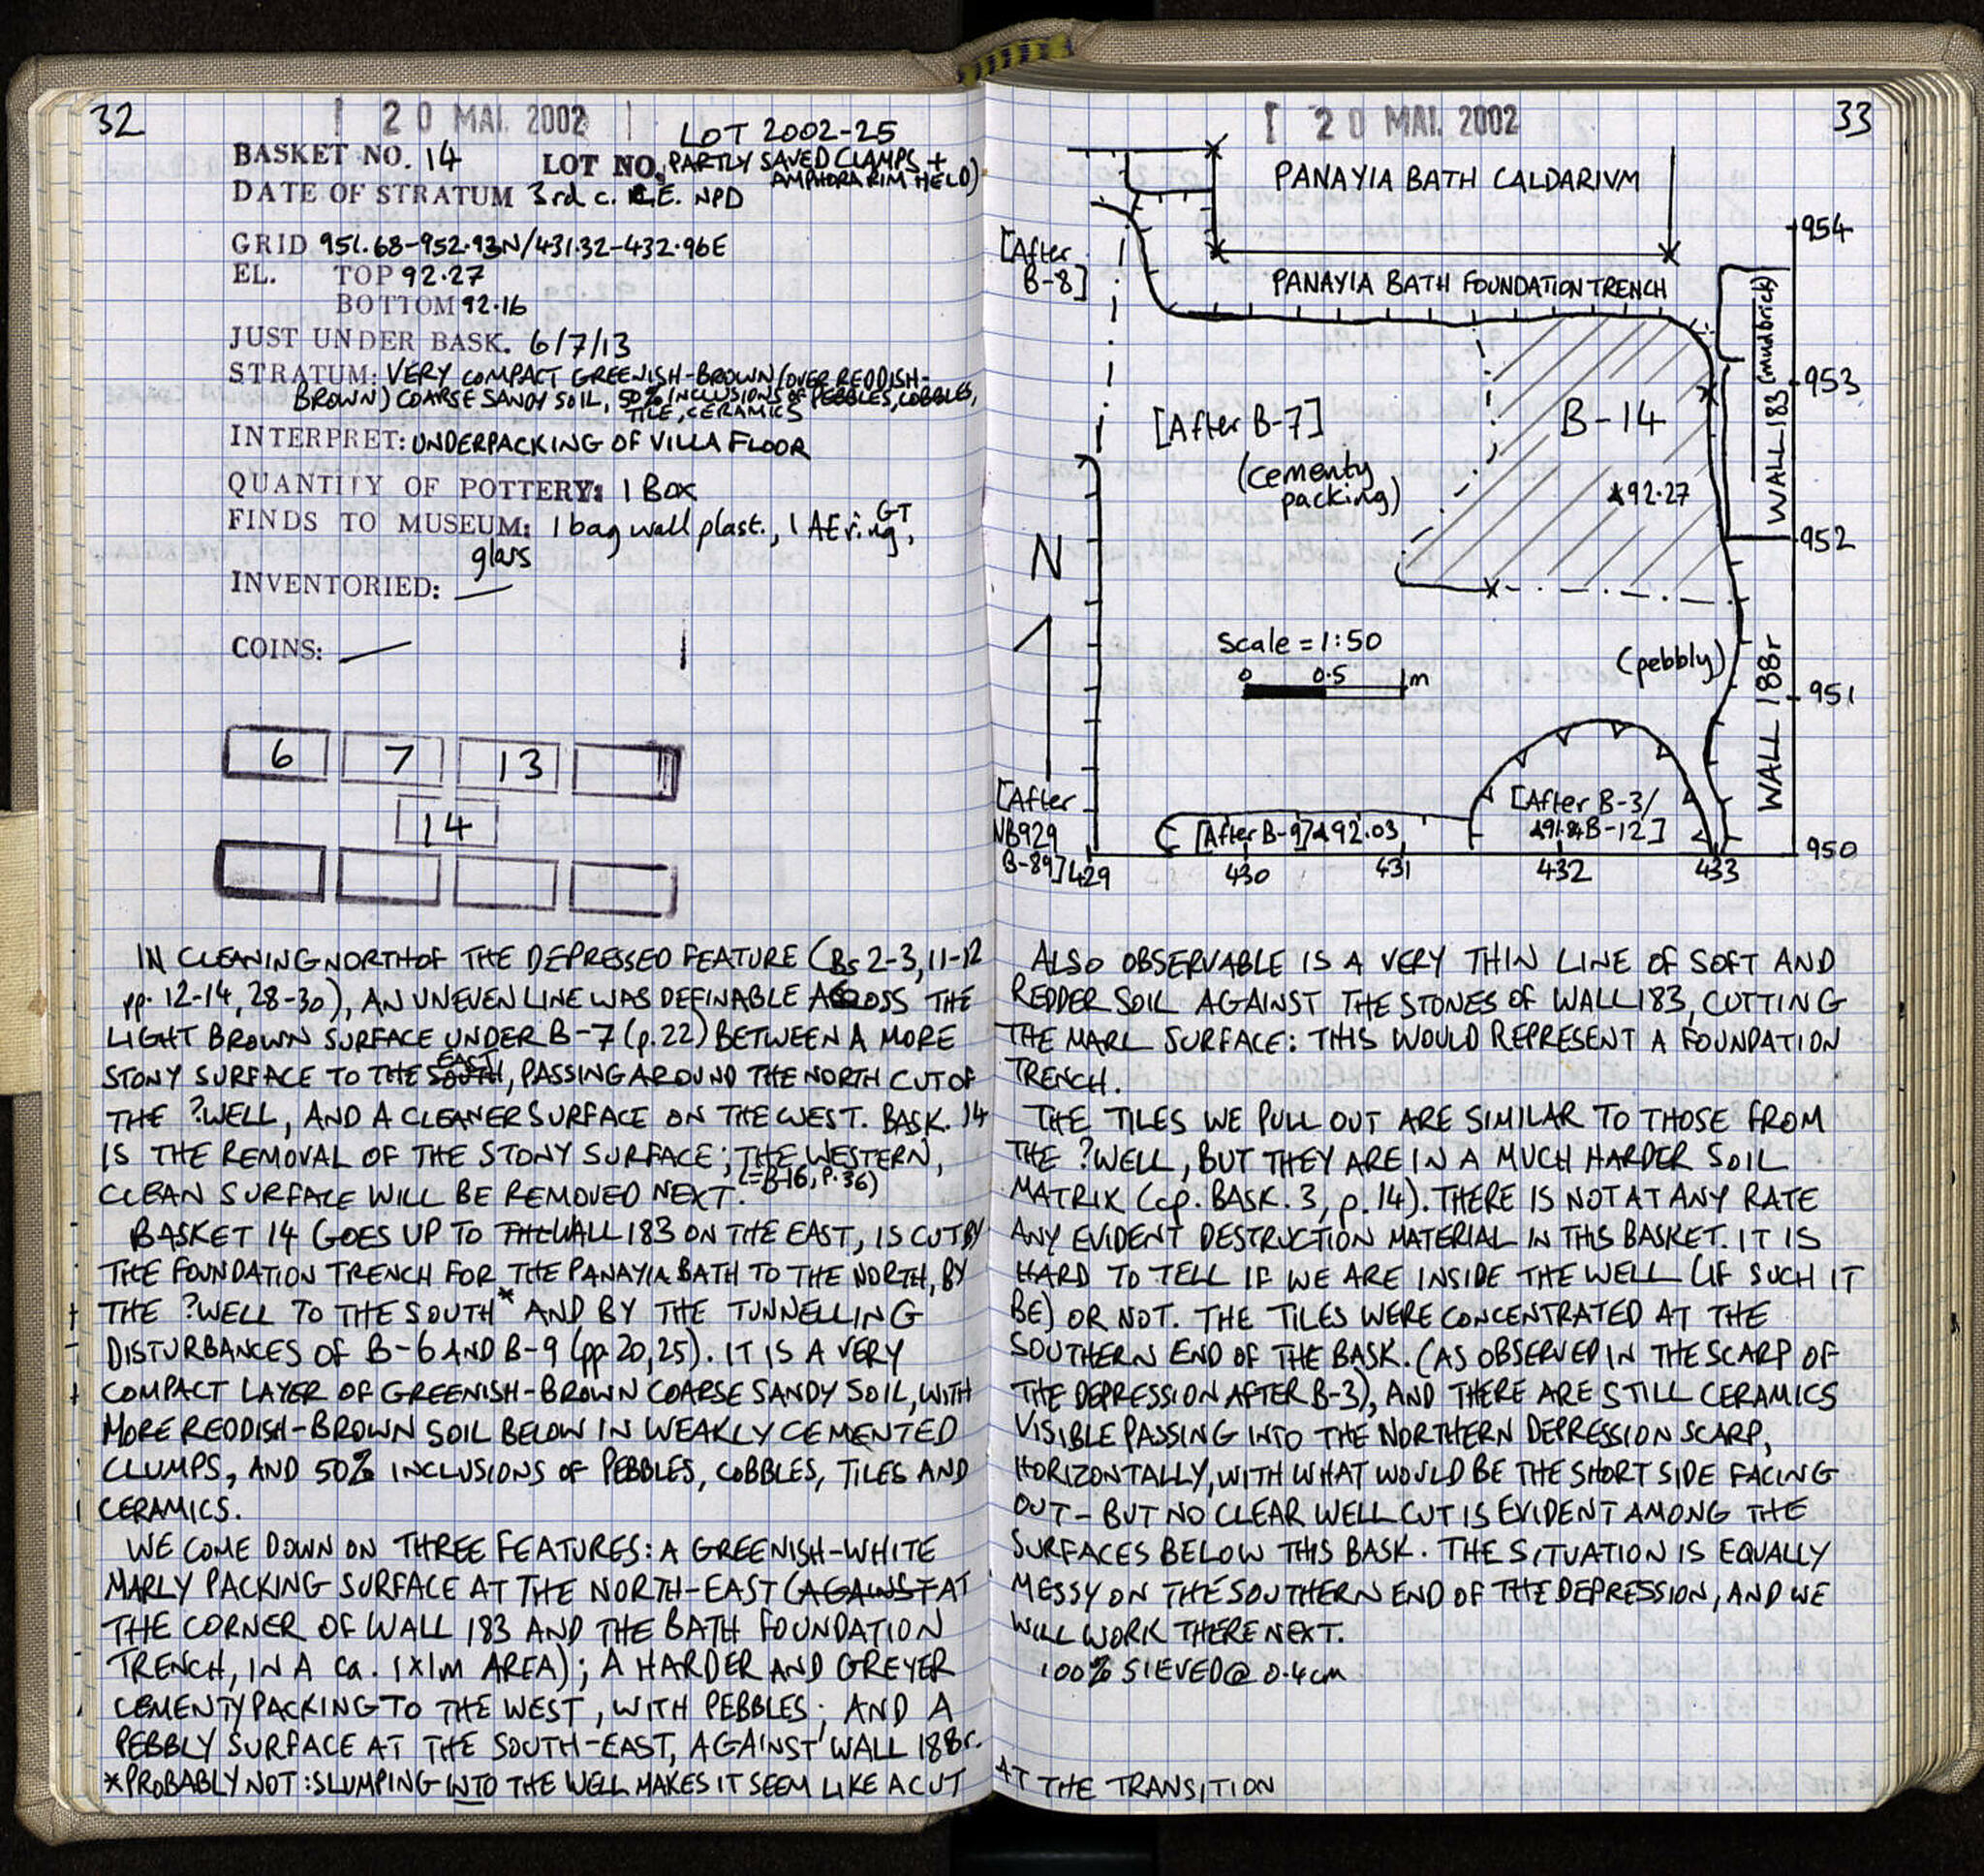 32
20 MAI. 2002
LOT 2002-25
BASKET NO. 14 LOT NO. PARTLY SAVED CLAMPS +
AMPHORA RIM HELD)
DATE OF STRATUM 3rd c. C.E. NPD
GRID 951.68-952.93N/431.32-432.96E
EL. TOP 92.27
BOTTOM 92.16
JUST UNDER BASK. 6/7/13
STRATUM: VERY COMPACT GREENISH-BROWN (OVER REDDISH-
BROWN) COARSE SANDY SOIL, 50% INCLUSIONS OF PEBBLES, COBBLES,
TILE, CERAMICS
INTERPRET: UNDERPACKING OF VILLA FLOOR
QUANTITY OF POTTERY: 1 BOX
FINDS TO MUSEUM: 1 bag wall plast., 1 AE ring, GT
glass
INVENTORIED: —
COINS: —
6 7 13
14
IN CLEANING NORTH OF THE DEPRESSED FEATURE (Bs 2-3, 11-12
pp. 12-14, 28-30), AN UNEVEN LINE WAS DEFINABLE ACROSS THE
LIGHT BROWN SURFACE UNDER B-7 (p.22) BETWEEN A MORE
STONY SURFACE TO THE SOUTH EAST, PASSING AROUND THE NORTH CUT OF
THE ?WELL, AND A CLEANER SURFACE ON THE WEST. BASK. 14
IS THE REMOVAL OF THE STONY SURFACE; THE WESTERN,
CLEAN SURFACE WILL BE REMOVED NEXT. (=B-16, p.36)
BASKET 14 GOES UP TO THE WALL 183 ON THE EAST, IS CUT BY
THE FOUNDATION TRENCH FOR THE PANAYIA BATH TO THE NORTH, BY
THE ?WELL TO THE SOUTH* AND BY THE TUNNELLING
DISTURBANCES OF B-6 AND B-9 (pp 20, 25). IT IS A VERY
COMPACT LAYER OF GREENISH-BROWN COARSE SANDY SOIL, WITH
MORE REDDISH-BROWN SOIL BELOW IN WEAKLY CEMENTED
CLUMPS, AND 50% INCLUSIONS OF PEBBLES, COBBLES, TILES AND
CERAMICS.
WE COME DOWN ON THREE FEATURES: A GREENISH-WHITE
MARLY PACKING SURFACE AT THE NORTH-EAST (AGAINST AT
THE CORNER OF WALL 183 AND THE BATH FOUNDATION
TRENCH, IN A ca. 1X1m AREA); A HARDER AND GREYER
CEMENTY PACKING TO THE WEST, WITH PEBBLES; AND A
PEBBLY SURFACE AT THE SOUTH-EAST, AGAINST WALL 188r.
*PROBABLY NOT: SLUMPING INTO THE WELL MAKES IT SEEM LIKE A CUT
20 MAI. 2002
33
PANAYIA BATH CALDARIUM
954
[After
B-8]
PANAYIA BATH FOUNDATION TRENCH
WALL 183 (mudbrick)
953
[After B-7]
B-14
(cementy
packing)
92.27
952
N
Scale = 1:50
0 0.5 1m
(pebbly)
WALL 188r
951
[After
NB929
B-89]
[After B-9] 92.03
[After B-3/
91.84 B-12]
950
429 430 431 432 433
ALSO OBSERVABLE IS A VERY THIN LINE OF SOFT AND
REDDER SOIL AGAINST THE STONES OF WALL 183, CUTTING
THE MARL SURFACE: THIS WOULD REPRESENT A FOUNDATION
TRENCH.
THE TILES WE PULL OUT ARE SIMILAR TO THOSE FROM
THE ?WELL, BUT THEY ARE IN A MUCH HARDER SOIL
MATRIX (cp. BASK. 3, p. 14). THERE IS NOT AT ANY RATE
ANY EVIDENT DESTRUCTION MATERIAL IN THIS BASKET. IT IS
HARD TO TELL IF WE ARE INSIDE THE WELL (IF SUCH IT
BE) OR NOT. THE TILES WERE CONCENTRATED AT THE
SOUTHERN END OF THE BASK. (AS OBSERVED IN THE SCARP OF
THE DEPRESSION AFTER B-3), AND THERE ARE STILL CERAMICS
VISIBLE PASSING INTO THE NORTHERN DEPRESSION SCARP,
HORIZONTALLY, WITH WHAT WOULD BE THE SHORT SIDE FACING
OUT - BUT NO CLEAR WELL CUT IS EVIDENT AMONG THE
SURFACES BELOW THIS BASK. THE SITUATION IS EQUALLY
MESSY ON THE SOUTHERN END OF THE DEPRESSION, AND WE
WILL WORK THERE NEXT.
100% SIEVED @ 0.4cm
AT THE TRANSITION